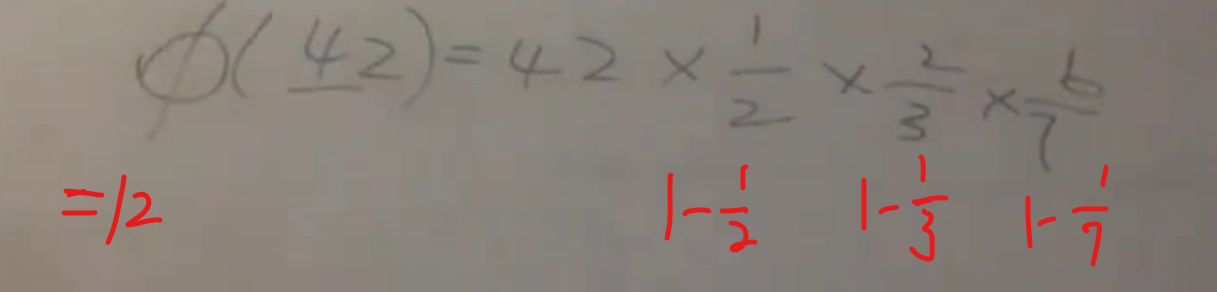 φ(42) = 42 × 1/2 × 2/3 × 6/7
=12 1-1/2 1-1/3 1-1/7